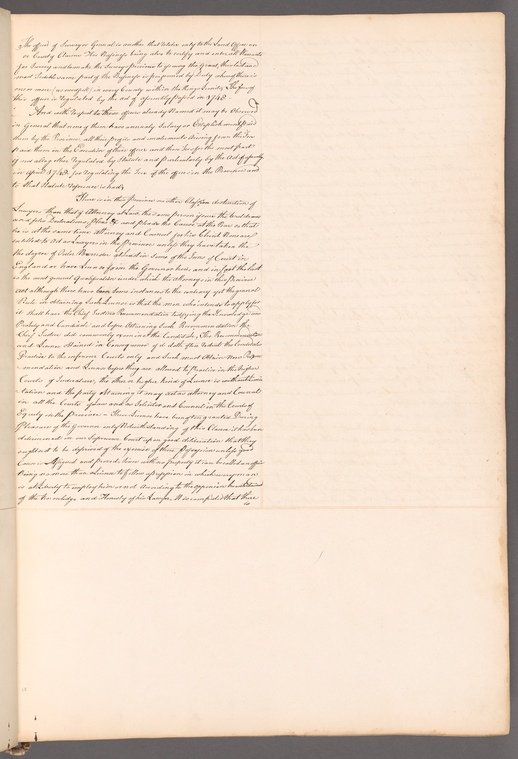 The office of Surveyor General is another that relates only to the Land Office or
or Court of Claims His Business being also to certify and enter all Warrants
for Survey and to make the Surveys previous to issuing the Grant, this last and
most part of the Business is performed by Deputy whom there is
one or more in every County within the Kings County. The fees of
this office is regulated by the act of Assembly passed in 1748.
And with respect to these offices already Named it may be Observed
in General that none of them have annually Salary or Establishment paid
them by the Province, all their profits and emoluments arising from the Fees
paid them in the Execution of their office and these Fees for the most part
if not altogether regulated by Statute and particularly by the Act of Assembly
in April 1748 for regulating the Fees of the offices in the Province and
to that Statute Reference is had.
There is in this Province no other Class or distinction of
Lawyers than that of Attorney at Law, the same person
and files Declarations, Pleas &c and pleads the Cause at the Bar so that
he is at the same time Attorney and Counsel for his Client None are
entitled to Act as Lawyers in the Province unless they have taken the
the degree of Outer Barrister at least in Some of the Inns of Court in
England or have Licence from the Governor here, and in fact the last
is the most general Qualification under which the Attorneys in this Province
act although there have been some instances to the contrary yet the general
Rule in obtaining Such Licence is that the man who intends to apply for
it shall have the Chief Justices Recommendation testifying the Knowledge in
Probity and Candidate and before Obtaining Such Recommendation the
Chief Justice did commonly examine the Candidate, The Recommendation
and Licence Obtained in Consequence of it doth often restrict the Candidates
Practice to the inferiour Courts only and Such must Obtain New Recom
mendation and Licence before they are allowed to practice in the higher
Courts of Judicature, the other or higher kind of Licence is without Limi
tation and the party obtaining it may act as attorney and Counsel
in all the Courts of Law and as Solicitor and Counsel in the Courts of
Equity in the Province – These Licences have been often granted During
Pleasure of the Governor only Notwithstanding of this Clause it has been
determined in our Supream Court upon good deliberation that they
ought not to be deprived of the exercise of their Profession unless good
Cause Assigned and proved, Since with no property it can be called an office
being no more than a license to follow a profession in which every man
is at Liberty to employ him or not According to the oppinion he
of the Knowledge and Honesty of his Lawyer. It is computed that there
is